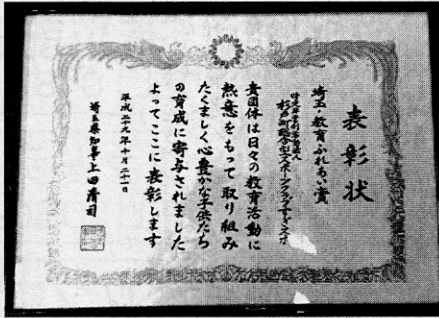 表彰状
埼玉・教育ふれあい賞
特定非営利活動法人
杉戸町総合型スポーツクラブ
貴団体は日々の教育活動に
熱意をもって取り組み
たくましく心豊かな子供たち
の育成に寄与されました
よってここに表彰します
平成二十九年十月二十一日
埼玉県知事上田清司